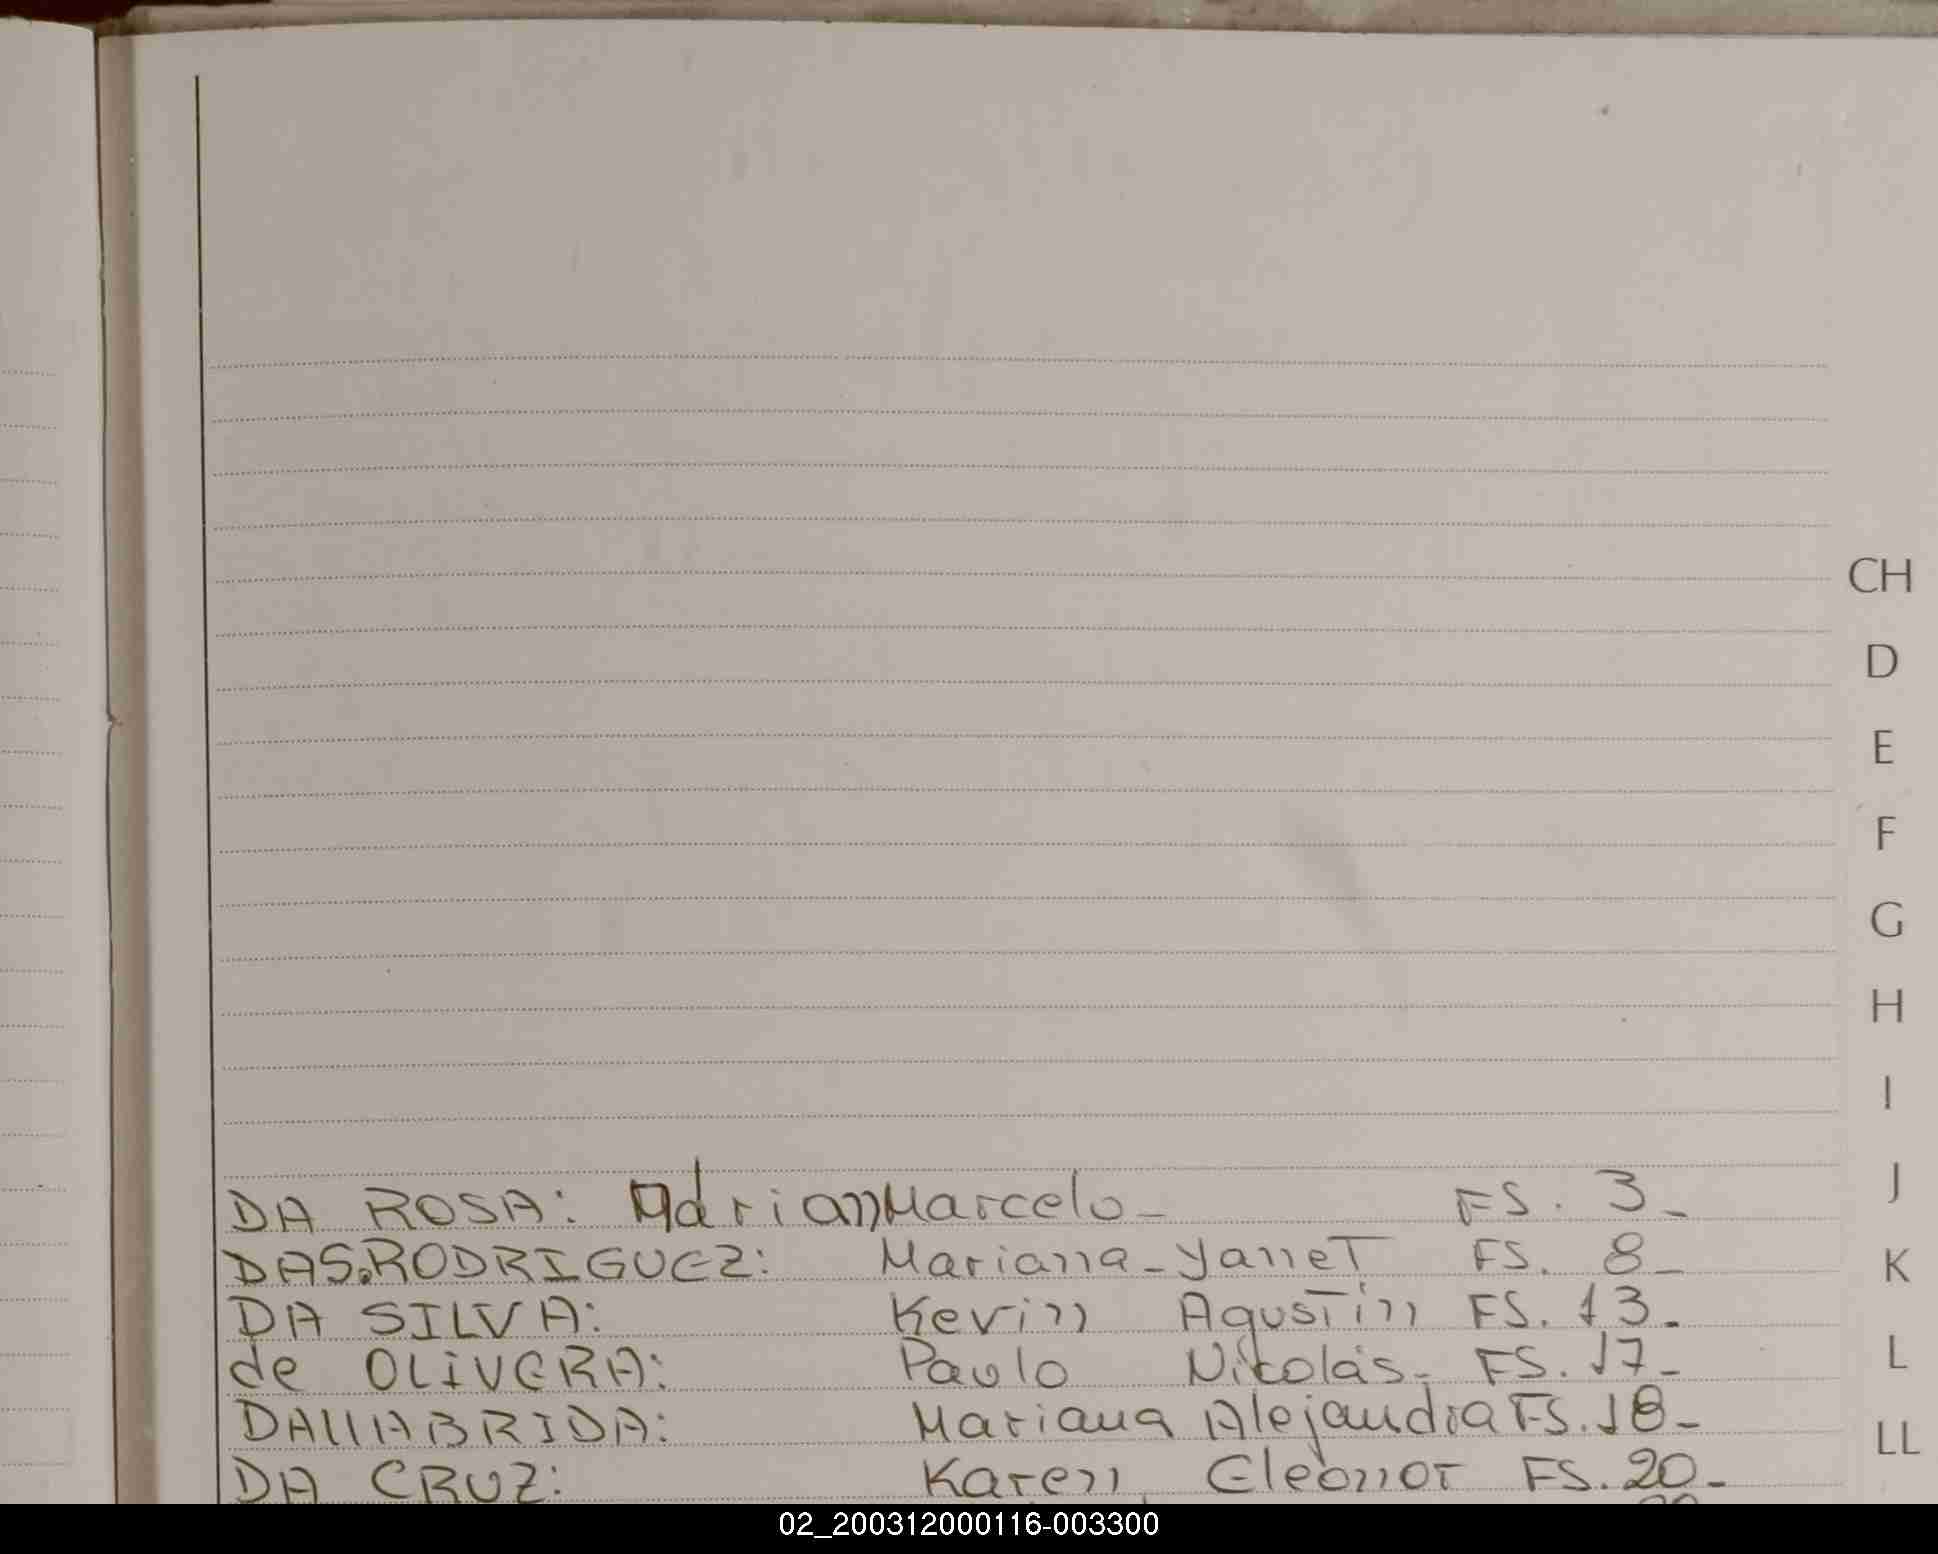 CH
D
E
F
G
H
I
J
K
L
LL
DA ROSA: Adrian Marcelo - FS. 3-
DAS.RODRIGUEZ: Mariana - Yannet FS. 8-
DA SILVA: Kevin Agustin FS. 13-
de OLIVERA: Paulo Nicolás- FS. 17-
DALLABRIDA: Mariana Alejandra FS. 18-
DA CRUZ: Karen Eleonor FS. 20-
02_200312000116-003300